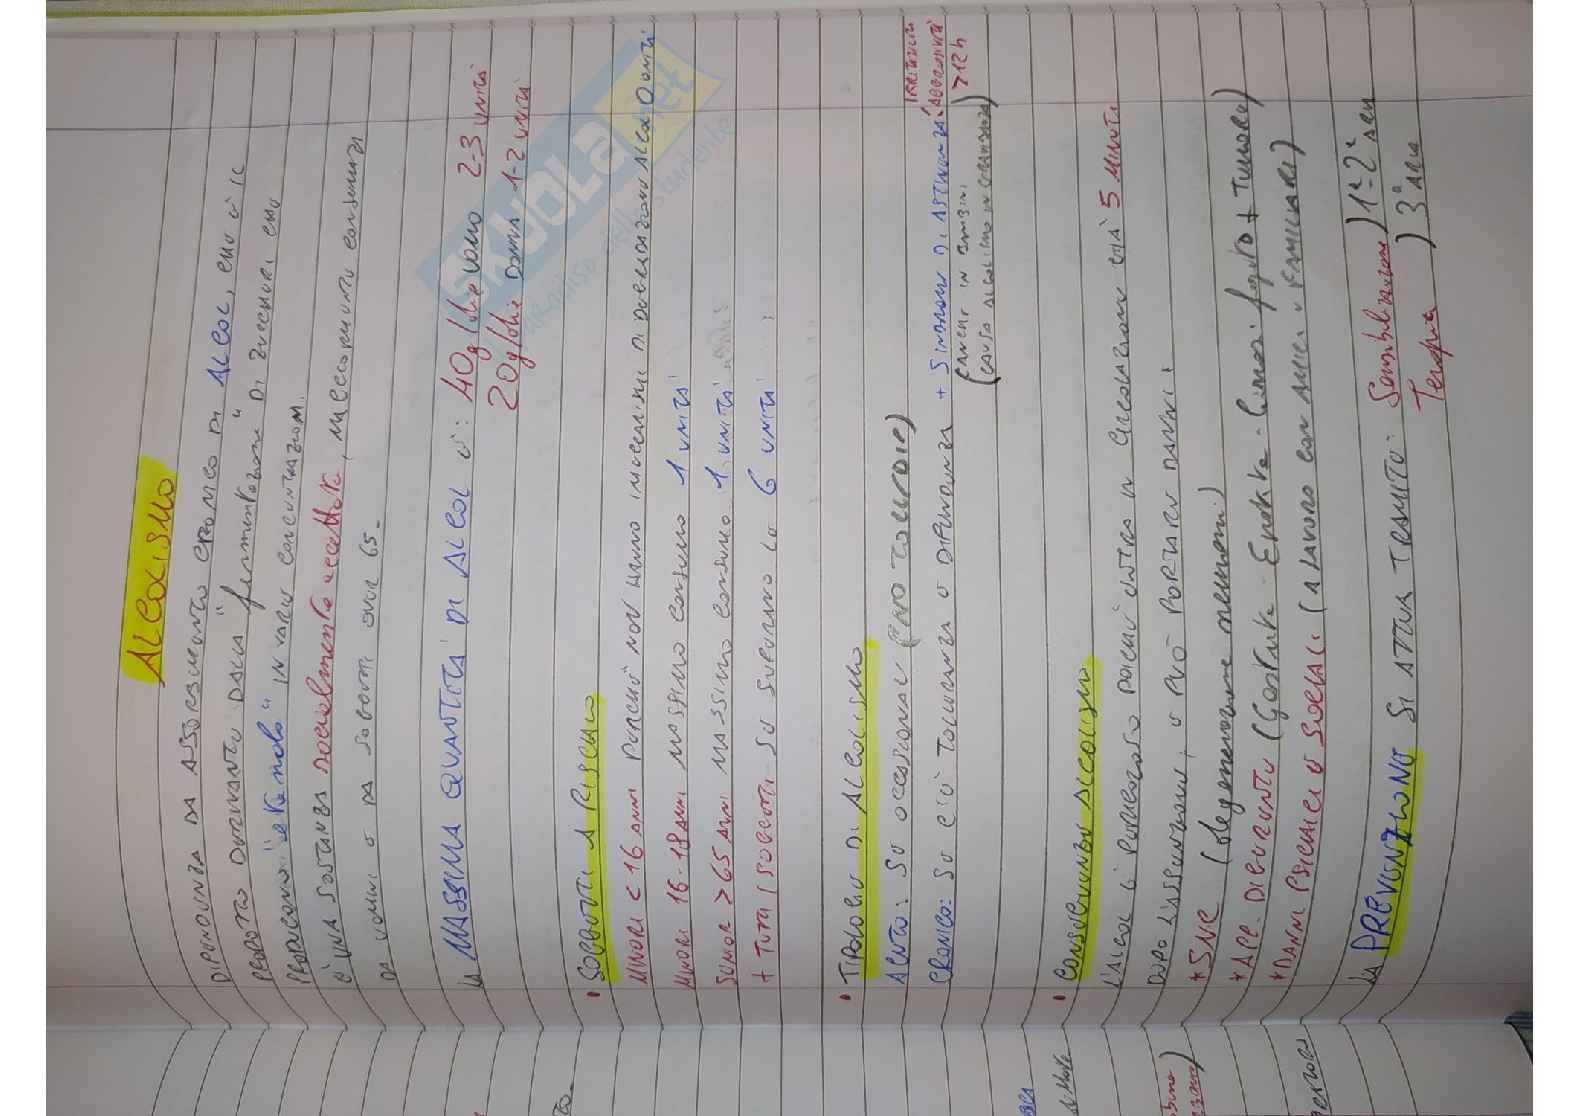 ALCOLISMO
DIPENDENZA DA ASSORBIMENTO CRONICO DI ALCOL, CHE È IL
PRODOTTO DERIVANTE DALLA "fermentazione" DI ZUCCHERI CHE
PRODUCONO "etanolo" IN VARIE CONCENTRAZIONI.
È UNA SOSTANZA socialmente accettata, MAGGIORMENTE CONSUMATA
DA UOMINI E DA SOGGETTI OVER 65-
LA MASSIMA QUANTITÀ DI ALCOL È: 40g/die UOMO 2-3 UNITÀ
20g/die DONNA 1-2 UNITÀ
• SOGGETTI A RISCHIO
MINORI < 16 ANNI PERCHÉ NON HANNO I MECCANISMI DI DEGRADAZIONE ALCOL 0 UNITÀ
MINORI 16-18 ANNI MASSIMO CONSUMO 1 UNITÀ
SENIOR > 65 ANNI MASSIMO CONSUMO 1 UNITÀ
+ TUTTI I SOGGETTI SE SUPERANO LE 6 UNITÀ
• TIPOLOGIE DI ALCOLISMO
ACUTO: SE OCCASIONALE (NO TOLLERANZA)
CRONICO: SE C'È TOLLERANZA E DIPENDENZA + SINDROME DI ASTINENZA (IRRITABILITÀ, AGGRESSIVITÀ > 12h
(ANCHE IN BAMBINI
CAUSA ALCOLISMO IN GRAVIDANZA)
• CONSEGUENZE ALCOLISMO
L'ALCOL È PERICOLOSO POICHÉ ENTRA IN CIRCOLAZIONE GIÀ 5 MINUTI
DOPO L'ASSUNZIONE, E PUÒ PORTARE DANNI:
* SNC (degenerazione neuroni)
* APP. DIGERENTE (Gastrite - Epatite - Cirrosi fegato + Tumore)
* DANNI PSICHICI E SOCIALI (A LAVORO CON AMICI E FAMILIARI)
LA PREVENZIONE SI ATTUA TRAMITE: Sensibilizzazione) 1ª-2ª ARIA
Terapia ) 3ª ARIA
SKUOLA.net
paradiso dello studente